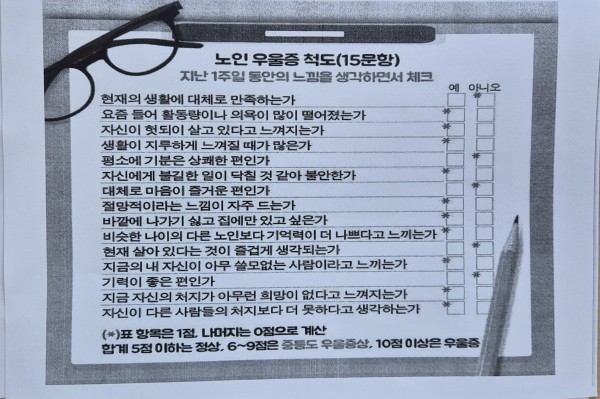 노인 우울증 척도(15문항)
지난 1주일 동안의 느낌을 생각하면서 체크
예 아니오
현재의 생활에 대체로 만족하는가 *
요즘 들어 활동량이나 의욕이 많이 떨어졌는가 *
자신이 헛되이 살고 있다고 느껴지는가 *
생활이 지루하게 느껴질 때가 많은가 *
평소에 기분은 상쾌한 편인가 *
자신에게 불길한 일이 닥칠 것 같아 불안한가 *
대체로 마음이 즐거운 편인가 *
절망적이라는 느낌이 자주 드는가 *
바깥에 나가기 싫고 집에만 있고 싶은가 *
비슷한 나이의 다른 노인보다 기억력이 더 나쁘다고 느끼는가 *
현재 살아 있다는 것이 즐겁게 생각되는가 *
지금의 내 자신이 아무 쓸모없는 사람이라고 느끼는가 *
기력이 좋은 편인가 *
지금 자신의 처지가 아무런 희망이 없다고 느껴지는가 *
자신이 다른 사람들의 처지보다 더 못하다고 생각하는가 *
(*)표 항목은 1점, 나머지는 0점으로 계산
합계 5점 이하는 정상, 6~9점은 중등도 우울증상, 10점 이상은 우울증